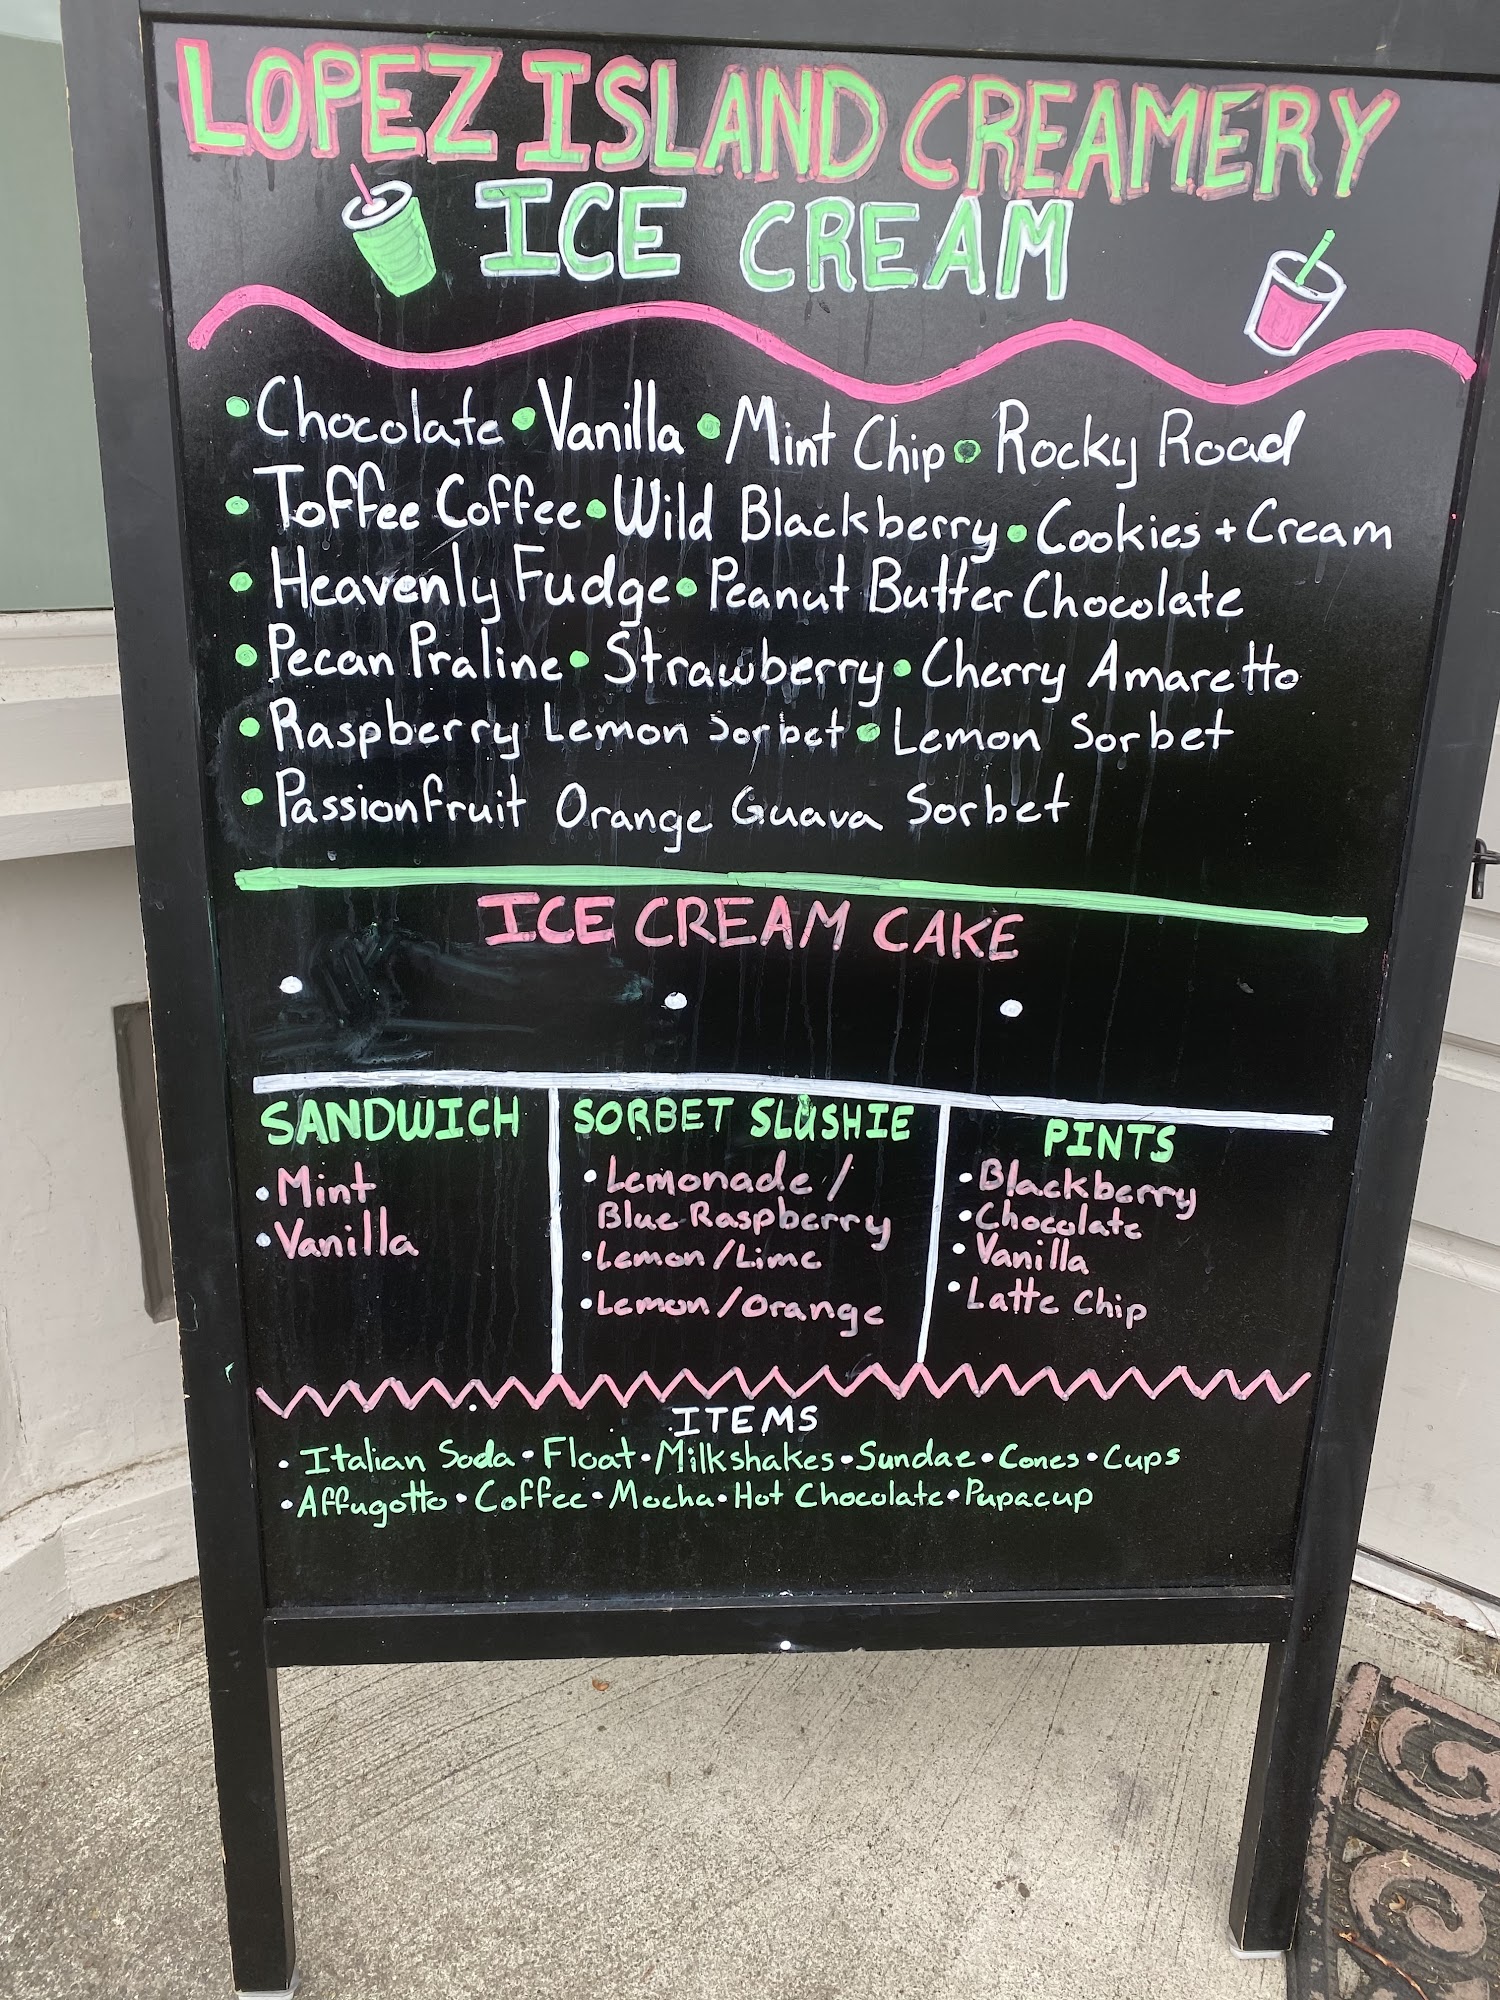 LOPEZ ISLAND CREAMERY
ICE CREAM
• Chocolate • Vanilla • Mint Chip • Rocky Road
• Toffee Coffee • Wild Blackberry • Cookies + Cream
• Heavenly Fudge • Peanut Butter Chocolate
• Pecan Praline • Strawberry • Cherry Amaretto
• Raspberry Lemon Sorbet • Lemon Sorbet
• Passionfruit Orange Guava Sorbet
ICE CREAM CAKE
SANDWICH
• Mint
• Vanilla
SORBET SLUSHIE
• Lemonade /
Blue Raspberry
• Lemon/Lime
• Lemon/Orange
PINTS
• Blackberry
• Chocolate
• Vanilla
• Latte Chip
ITEMS
• Italian Soda • Float • Milkshakes • Sundae • Cones • Cups
• Affugotto • Coffee • Mocha • Hot Chocolate • Pupacup